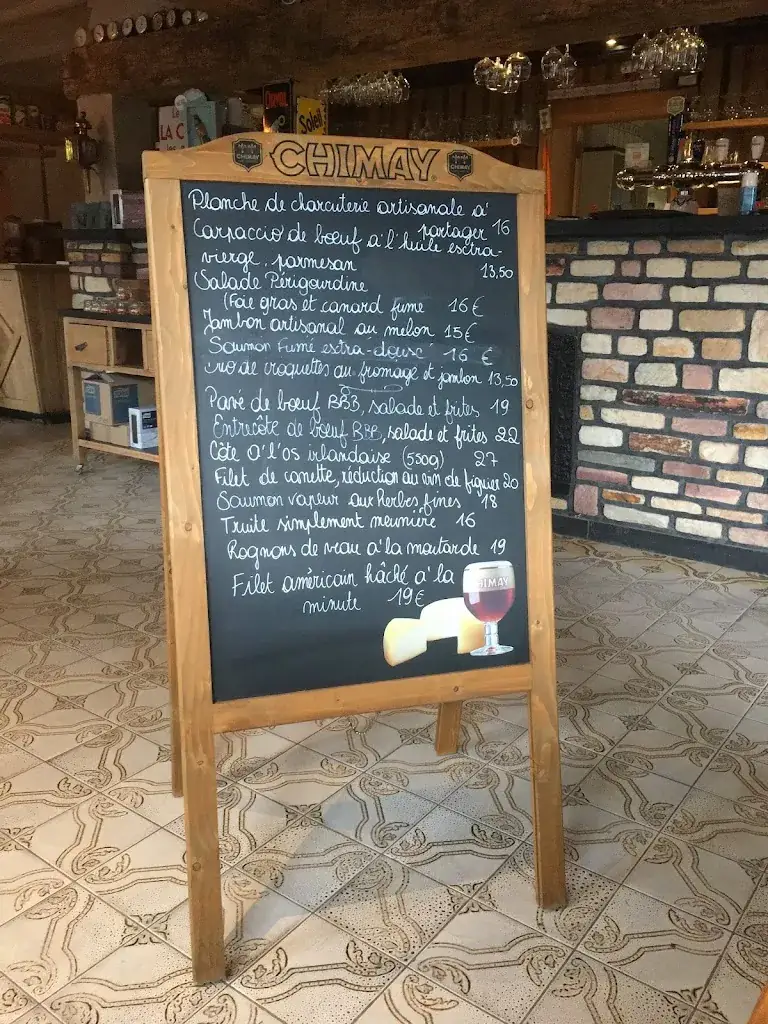 CHIMAY
CHIMAY
CHIMAY
Planche de charcuterie artisanale à
partager 16
Carpaccio de boeuf à l'huile estra-
vierge, parmesan 13,50
Salade Périgourdine
(Foie gras et canard fumé 16€
Jambon artisanal au melon 15€
Saumon Fumé estra-douse 16 €
rio de croquettes au fromage et jambon 13,50
Pavé de boeuf BBB, salade et frites 19
Entrecôte de boeuf BBB, salade et frites 22
Côte O'l'os irlandaise (550g) 27
Filet de canette, réduction au vin de figuier 20
Saumon vapeur aux herbes fines 18
Truite simplement meunière 16
Rognons de veau à la moutarde 19
Filet américain hâché à la
minute 19€
CHIMAY
LA C
Soleil